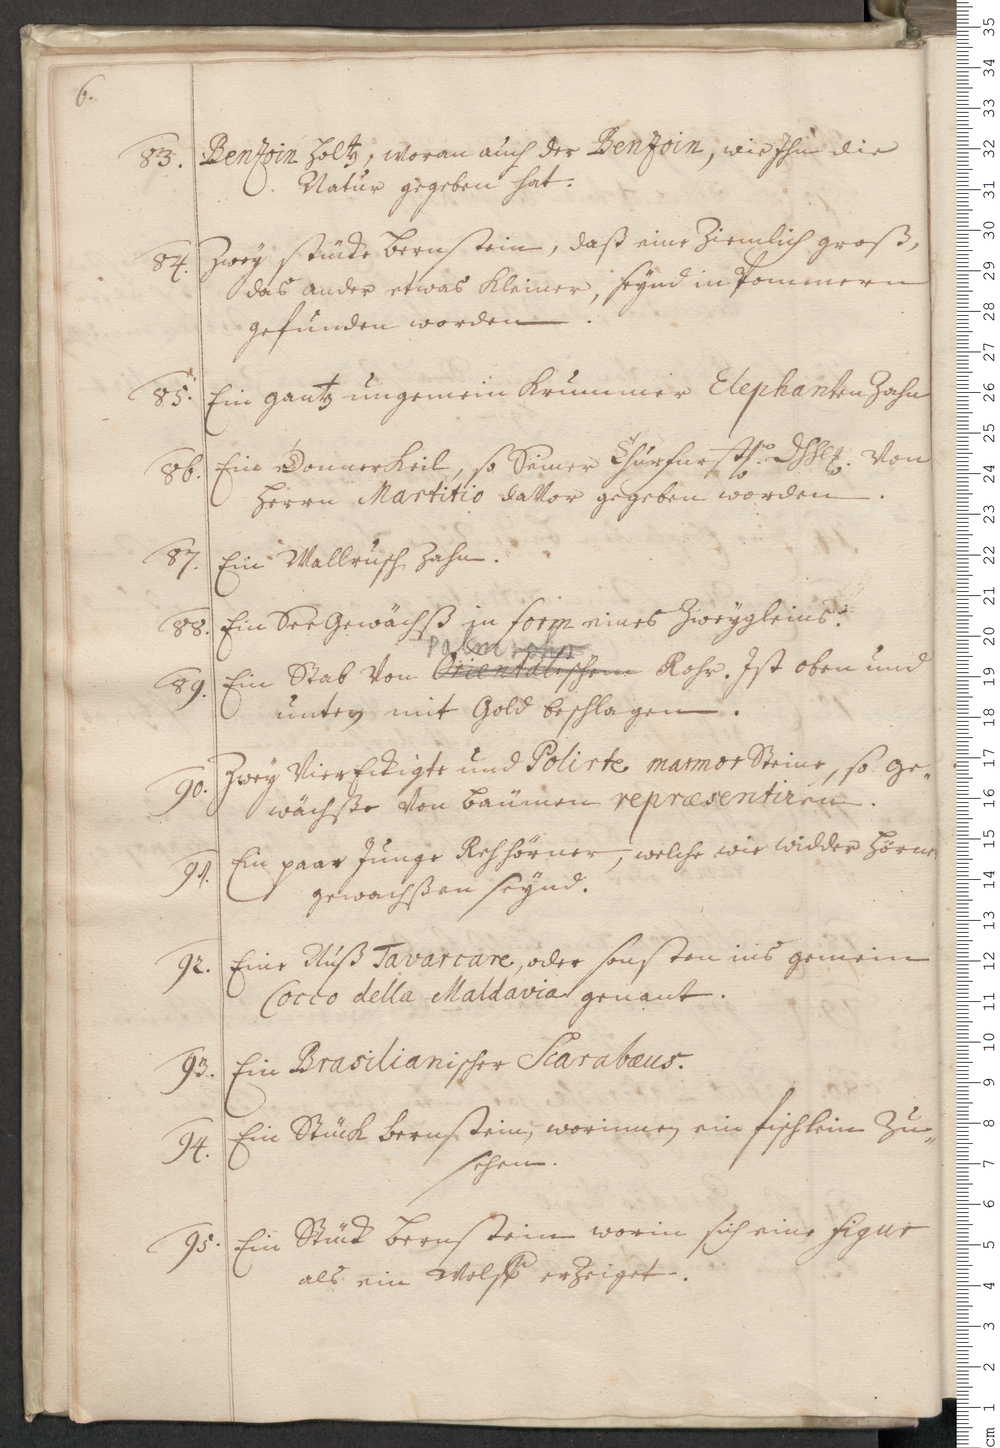 6.
83. Benzoin Holtz, woran auch der Benzoin, wie Ihn die
Natur gegeben hat.
84. Zwey stücke bernstein, daß eine Ziemlich groß,
das ander etwas kleiner, seynd in Pommern
gefunden worden.
85. Ein gantz ungemein krummer Elephanten Zahn
86. Ein Donnerkeil, so Seiner Churfürstl. Dhlt. von
Herrn Martitio davor gegeben worden.
87. Ein Wallrusch Zahn.
88. Ein See Gewächß in form eines Zweygleins.
Palmrohr
89. Ein Stab von Orientalischem Rohr. Ist oben und
unten mit Gold beschlagen.
90. Zwey Vierekigte und Polirte marmor Steine, so ge„
wächße von bäumen repræsentiren.
91. Ein paar Junge Rehhörner, welche wie widder Hörner
gewachßen seynd.
92. Eine Nuß Tavarcare, oder sonsten ins gemein
Cocco della Maldavia genant.
93. Ein Brasilianischer Scarabæus.
94. Ein Stück bernstein, worinnen ein fischlein zu„
sehen.
95. Ein Stück bernstein worin sich eine figur
als ein Wolff erzeiget.